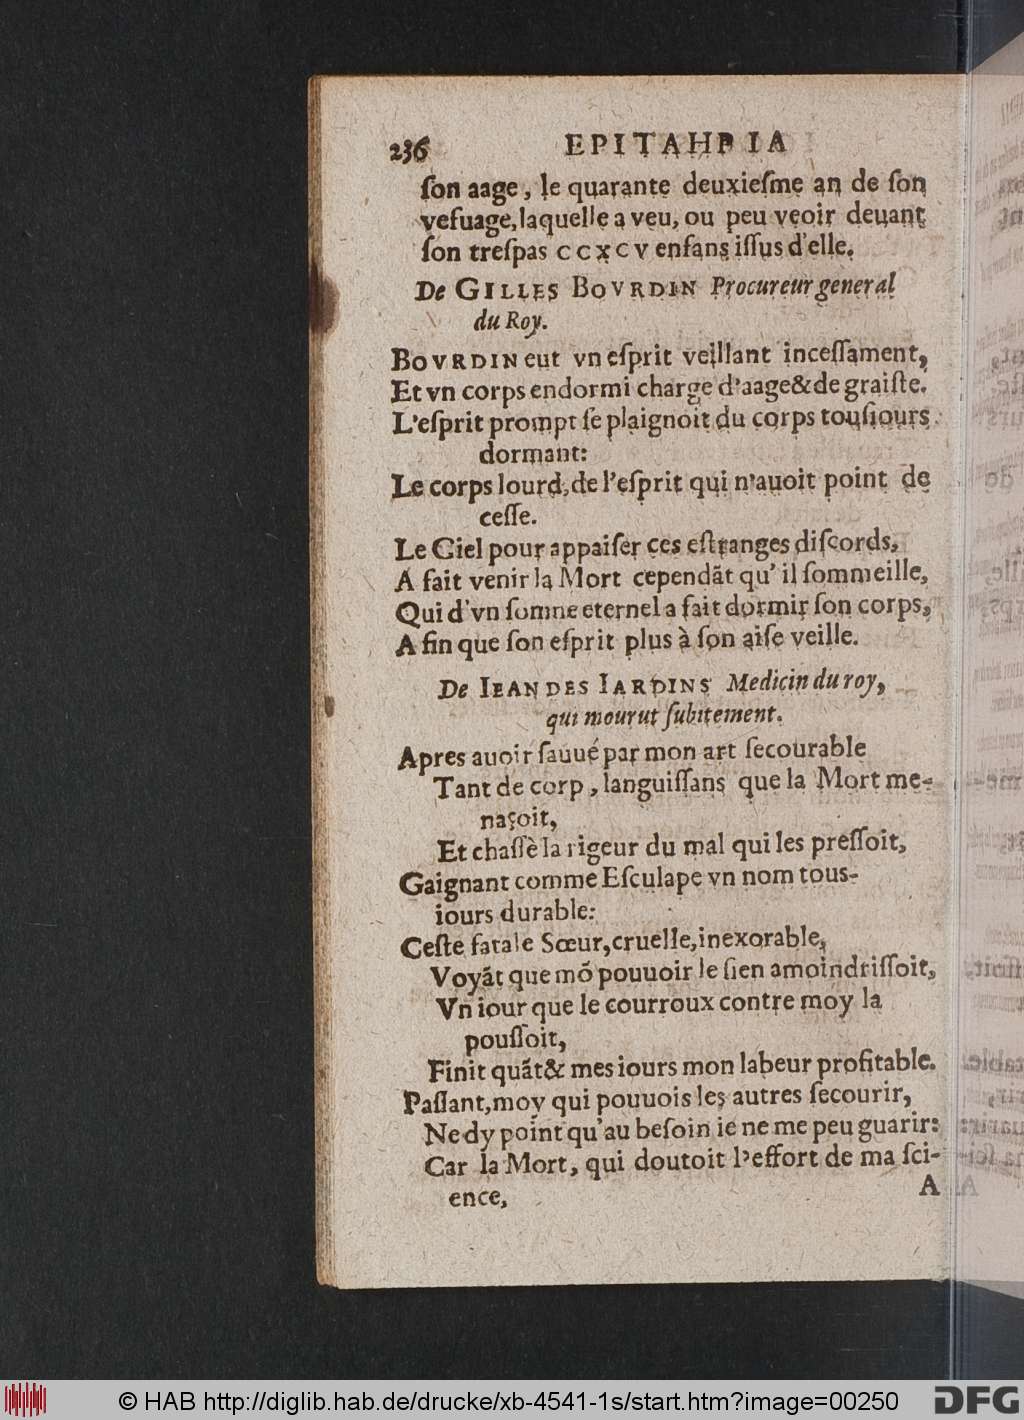 236 EPITAHPIA
ſon aage, le quarante deuxieſme an de ſon
vefuage, laquelle a veu, ou peu veoir deuant
ſon treſpas CCXCV enfans iſſus d'elle.
De GILLES BOVRDIN Procureur general
du Roy.
BOVRDIN eut vn eſprit veillant inceſſament,
Et vn corps endormi charge d'aage & de graiſte.
L'eſprit prompt ſe plaignoit du corps touſiours
dormant:
Le corps lourd, de l'eſprit qui n'auoit point de
ceſſe.
Le Ciel pour appaiſer ces eſtranges diſcords,
A fait venir la Mort cependãt qu' il ſommeille,
Qui d'vn ſomne eternel a fait dormir ſon corps,
A fin que ſon eſprit plus à ſon aiſe veille.
De IEAN DES IARDINS Medicin du roy,
qui mourut ſubitement.
Apres auoir ſauué par mon art ſecourable
Tant de corp, languiſſans que la Mort me-
naçoit,
Et chaſſè la rigeur du mal qui les preſſoit,
Gaignant comme Eſculape vn nom tous-
iours durable:
Ceſte fatale Sœur, cruelle, inexorable,
Voyãt que mõ pouuoir le ſien amoindriſſoit,
Vn iour que le courroux contre moy la
pouſſoit,
Finit quãt & mes iours mon labeur profitable.
Paſſant, moy qui pouuois les autres ſecourir,
Ne dy point qu'au beſoin ie ne me peu guarir:
Car la Mort, qui doutoit l'effort de ma ſci-
ence,
A
© HAB http://diglib.hab.de/drucke/xb-4541-1s/start.htm?image=00250
DFG